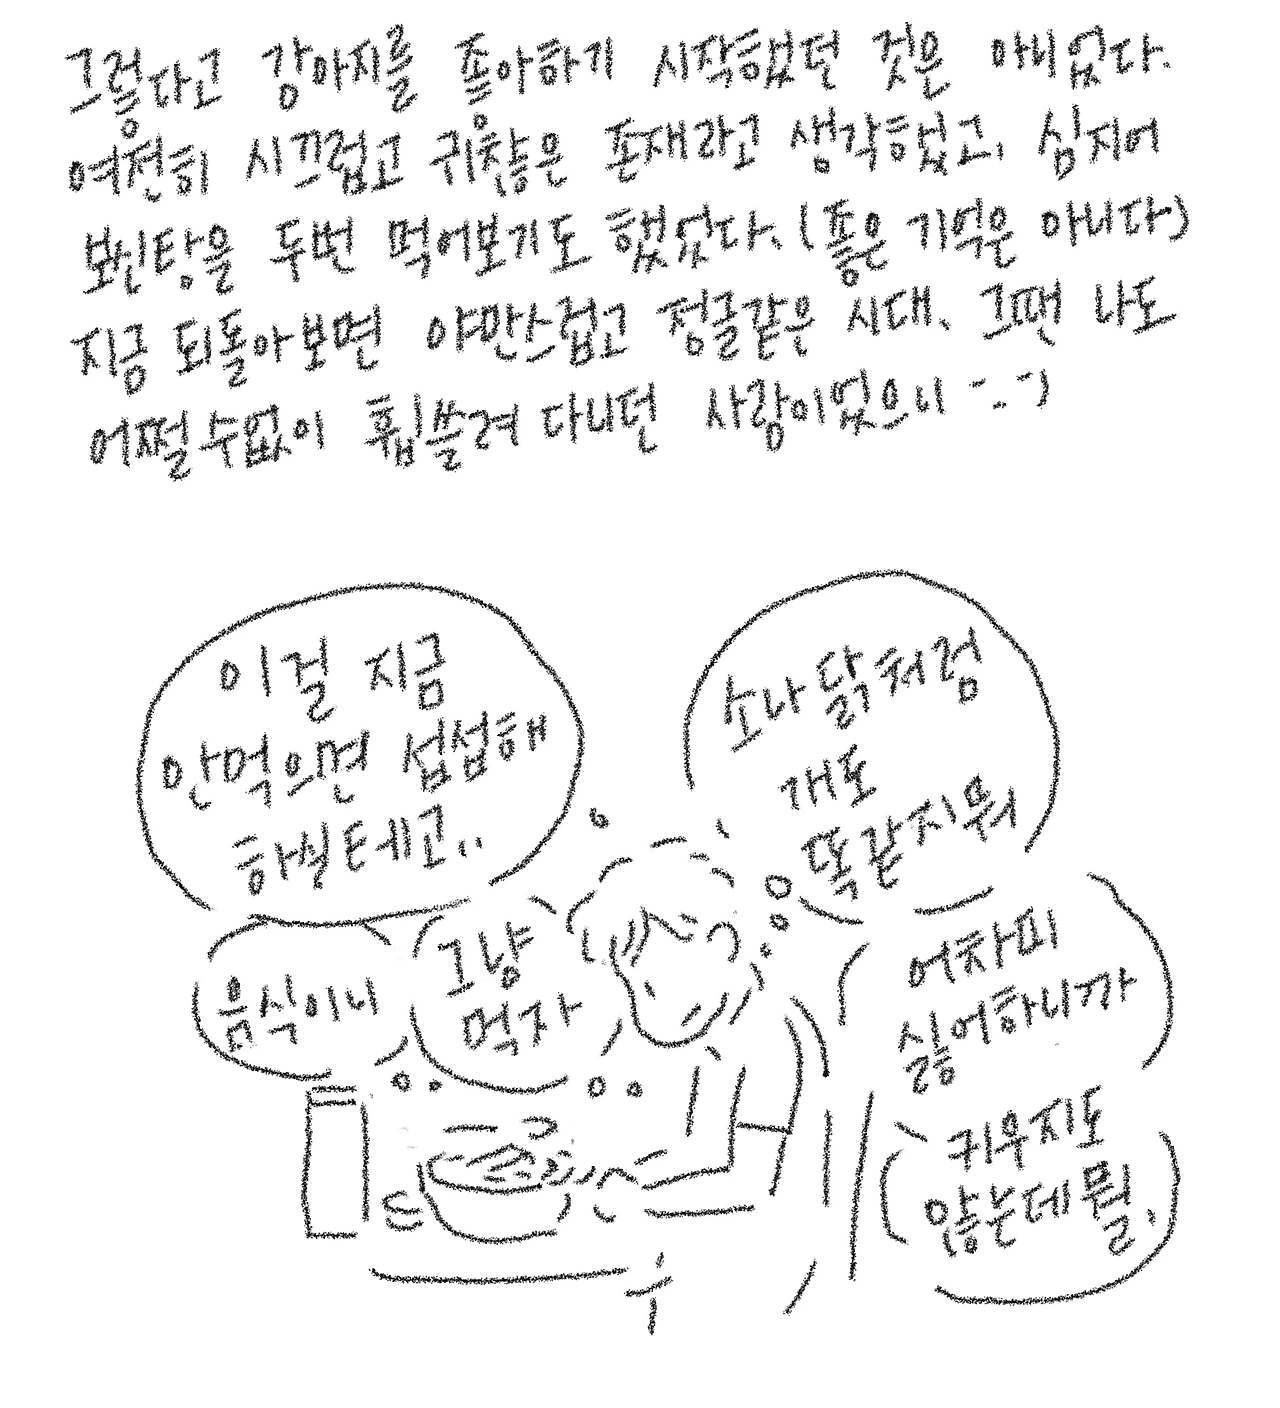 그렇다고 강아지를 좋아하기 시작했던 것은 아니었다.
여전히 시끄럽고 귀찮은 존재라고 생각했었고, 심지어
보신탕을 두번 먹어보기도 했었다. (좋은 기억은 아니다)
지금 되돌아보면 야만스럽고 정글같은 시대. 그땐 나도
어쩔수없이 휩쓸려 다니던 사람이었으니 -..-)
이걸 지금
안먹으면 섭섭해
하실테고..
소나 닭처럼
개도
똑같지뭐
음식이니
그냥
먹자
어차피
싫어하니까
키우지도
않는데뭘.